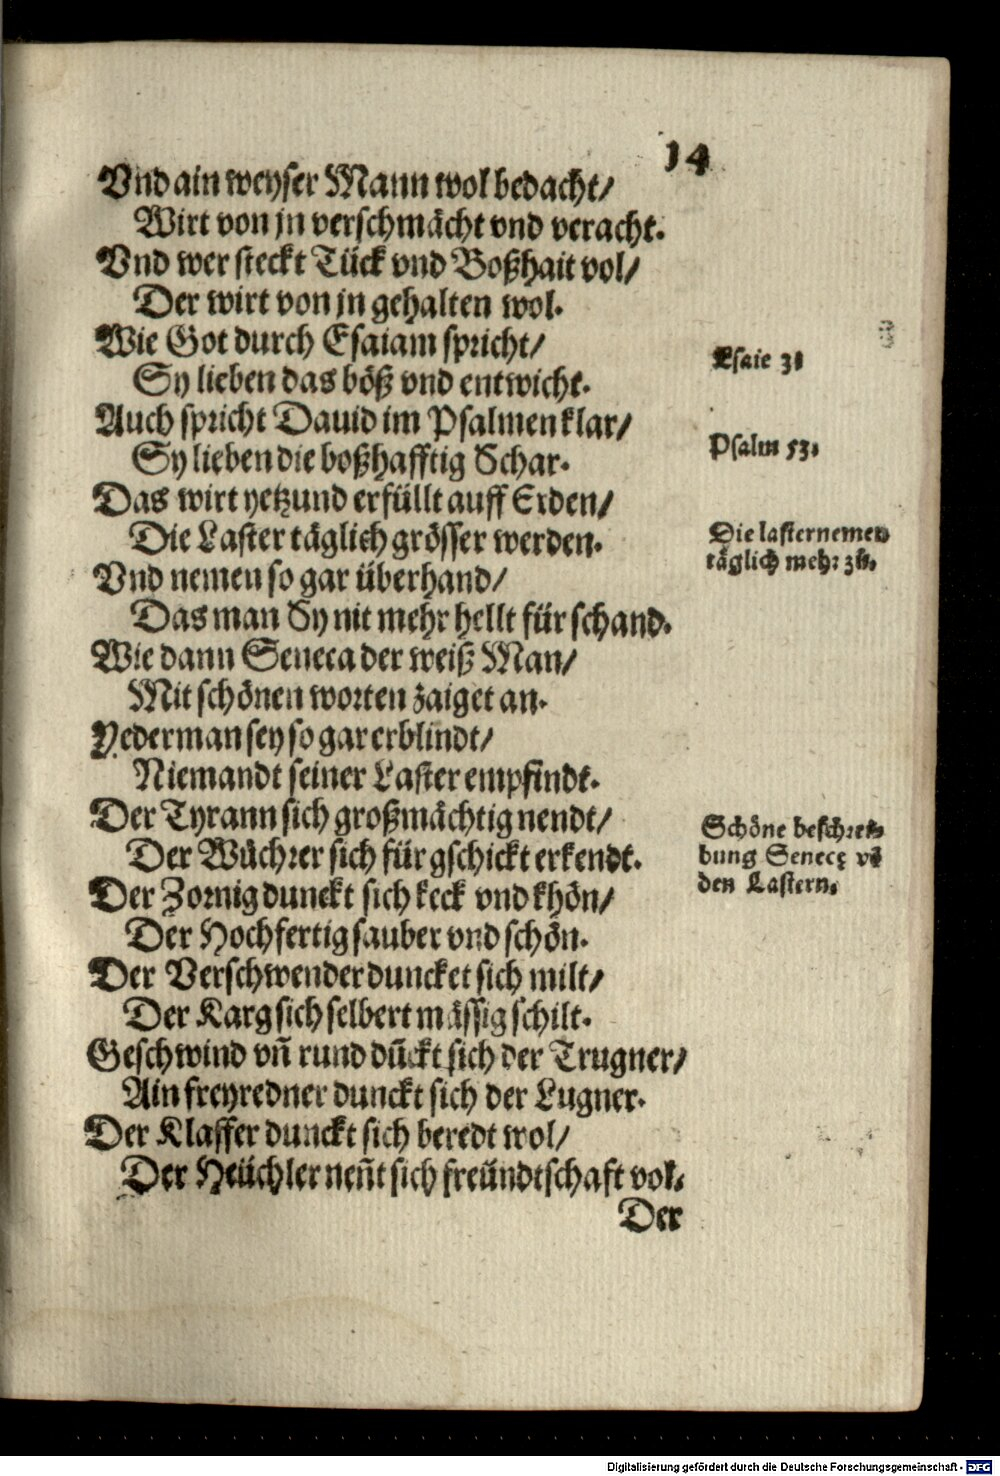 14
Vnd ain weyser Mann wol bedacht/
Wirt von jn verschmächt vnd veracht.
Vnd wer steckt Tück vnd Boßhait vol/
Der wirt von jn gehalten wol.
Wie Got durch Esaiam spricht/
Sy lieben das böß vnd entwicht.
Auch spricht Dauid im Psalmen klar/
Sy lieben die boßhafftig Schar.
Das wirt yetzund erfüllt auff Erden/
Die Laster täglich grösser werden.
Vnd nemen so gar überhand/
Das man Sy nit mehr hellt für schand.
Wie dann Seneca der weiß Man/
Mit schönen worten zaiget an.
Yederman sey so gar erblindt/
Niemandt seiner Laster empfindt.
Der Tyrann sich großmächtig nendt/
Der Wůchrer sich für gschickt erkendt.
Der Zornig dunckt sich keck vnd khön/
Der Hochfertig sauber vnd schön.
Der Verschwender duncket sich milt/
Der Karg sich selbert mässig schilt.
Geschwind vn̄ rund dūckt sich der Trugner/
Ain freyredner dunckt sich der Lugner.
Der Klaffer dunckt sich beredt wol/
Der Heüchler nen̄t sich freündtschaft vol.
Der
Esaie 3.
Psalm 53.
Die laster nemen
täglich mehr zů.
Schöne beschrei-
bung Senecę vō
den Lastern.
Digitalisierung gefördert durch die Deutsche Forschungsgemeinschaft - DFG